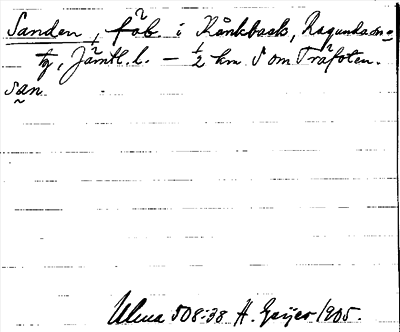 Sanden, fåb. i Kånkback, Ragunda sn
tg, Jämtl. l. – ½ km S om Träfoten.
san
Ulma 508:38 H. Geijer 1905.